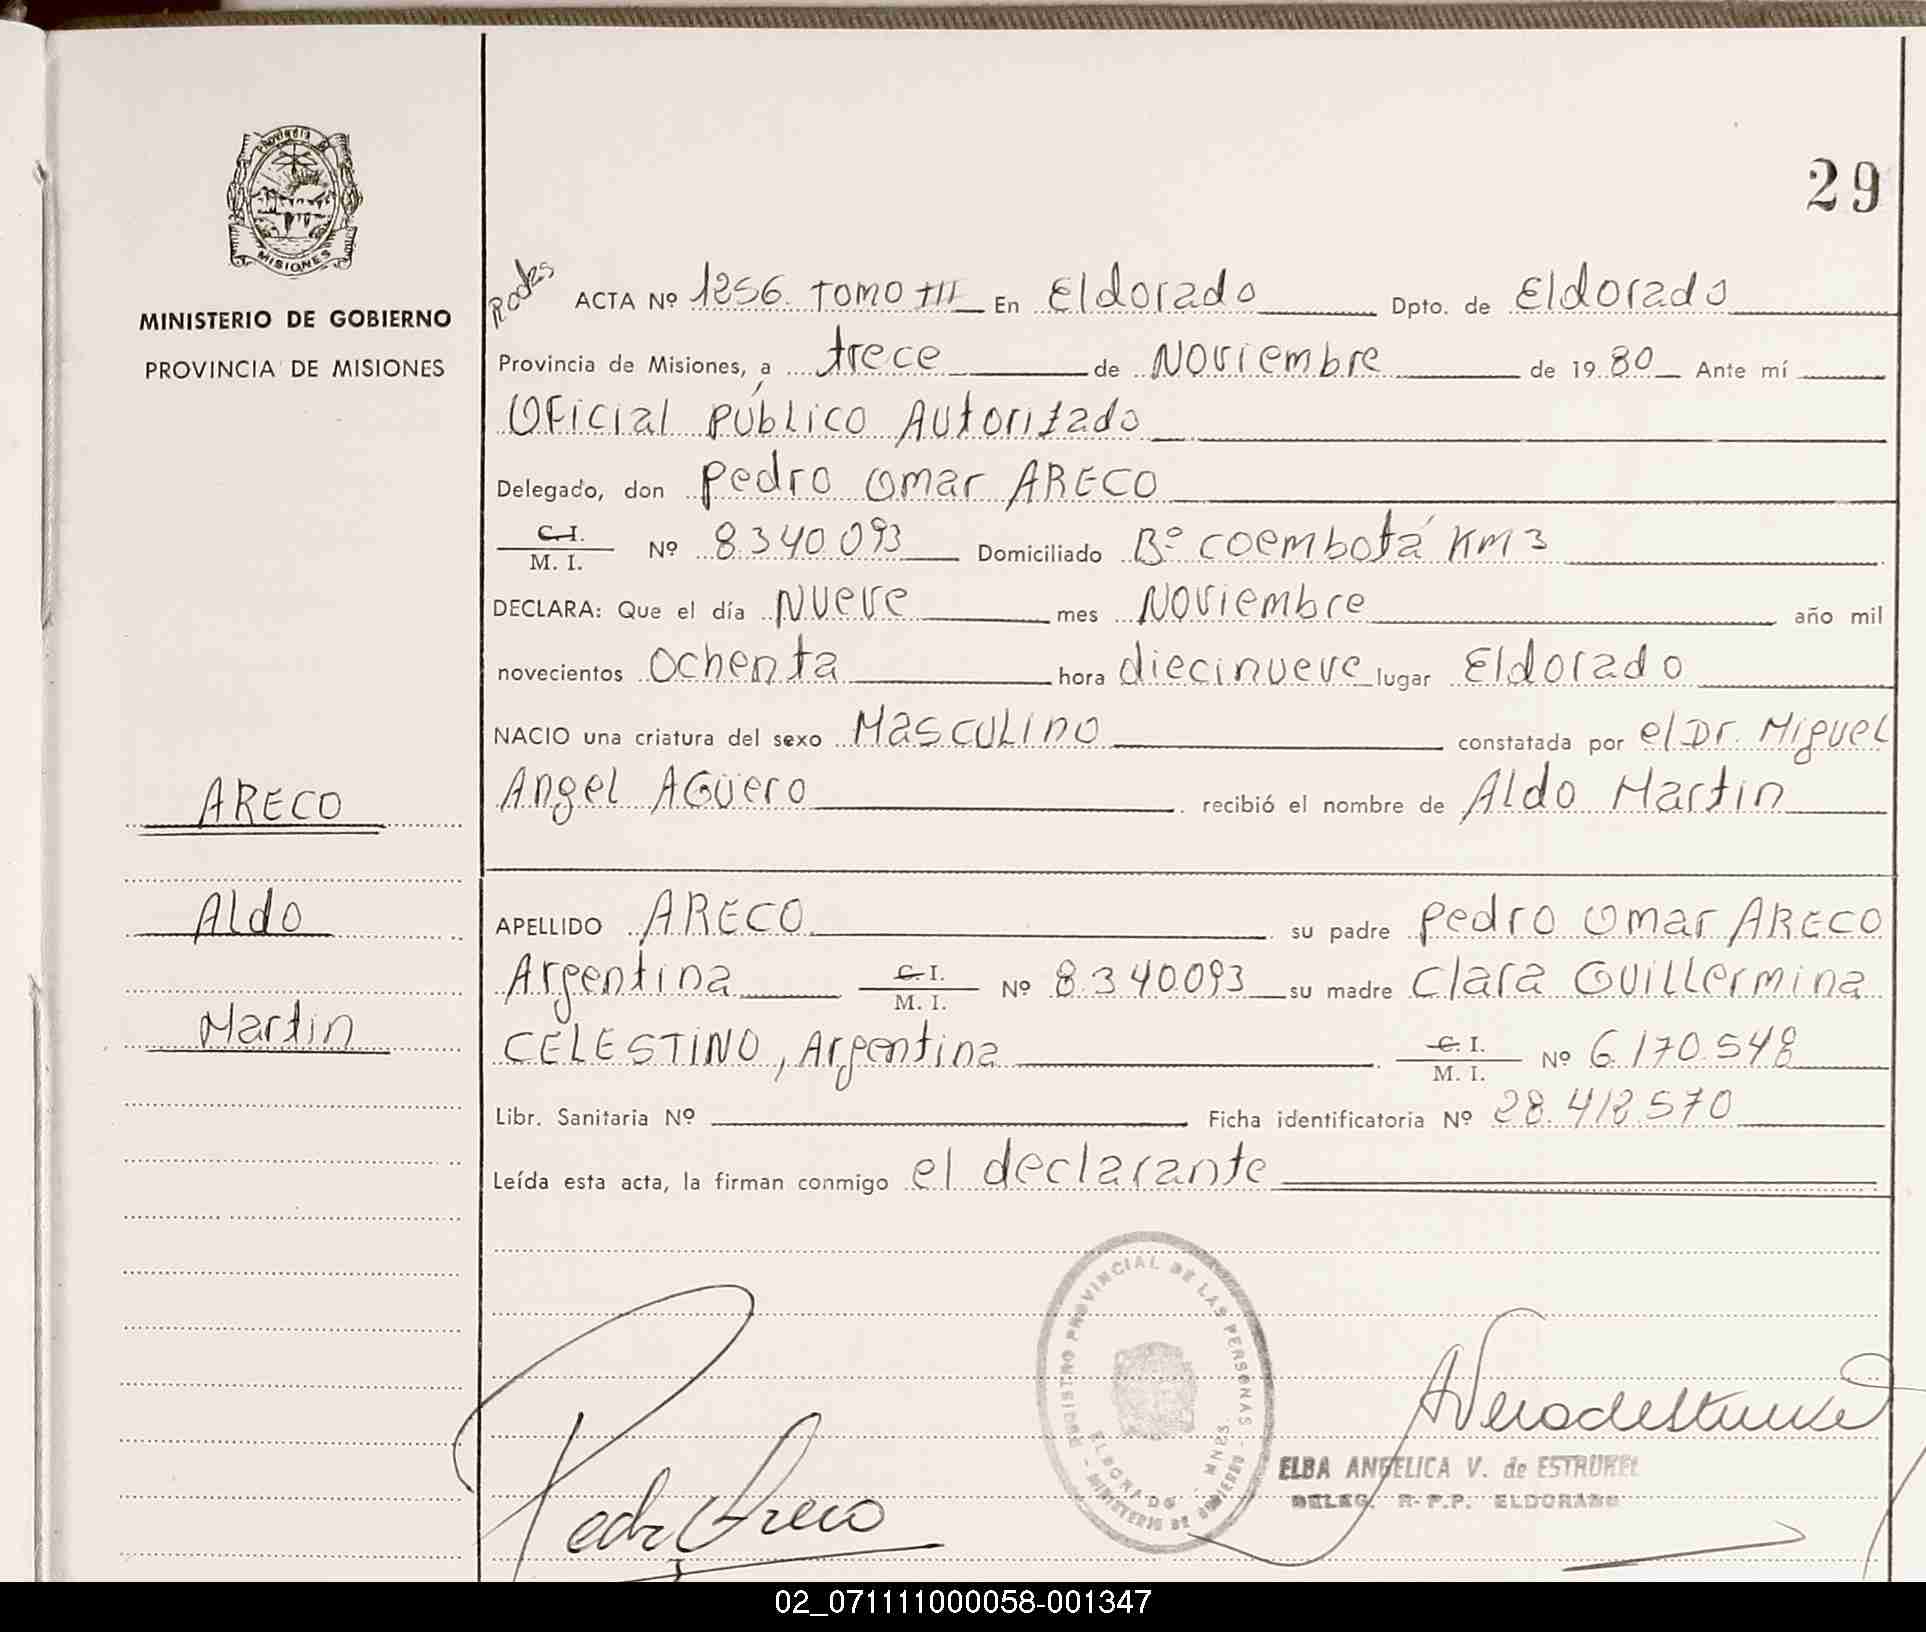 Provincia de
MISIONES
MINISTERIO DE GOBIERNO
PROVINCIA DE MISIONES
ARECO
Aldo
Martin
29
ACTA Nº 1256. TOMO III En Eldorado Dpto. de Eldorado
Provincia de Misiones, a trece de Noviembre de 19 80 Ante mí
Oficial Público Autorizado
Delegado, don Pedro Omar ARECO
C.I.
M. I. Nº 8.340.093 Domiciliado Bº coembotá KM 3
DECLARA: Que el día Nueve mes Noviembre año mil
novecientos Ochenta hora diecinueve lugar Eldorado
NACIO una criatura del sexo Masculino constatada por el Dr. Miguel
Angel AGüero recibió el nombre de Aldo Martin
APELLIDO ARECO su padre Pedro Omar ARECO
Argentina C.I.
M. I. Nº 8.340.093 su madre Clara Guillermina
CELESTINO, Argentina C. I.
M. I. Nº 6.170.548
Libr. Sanitaria Nº Ficha identificatoria Nº 28.418.570
Leída esta acta, la firman conmigo el declarante
REGISTRO PROVINCIAL DE LAS PERSONAS
ELDORADO - MNES.
- MINISTERIO DE GOBIERNO -
Pedro Areco
ELBA ANGELICA V. de ESTRUKEL
DELEG. R.P.P. ELDORADO
02_071111000058-001347